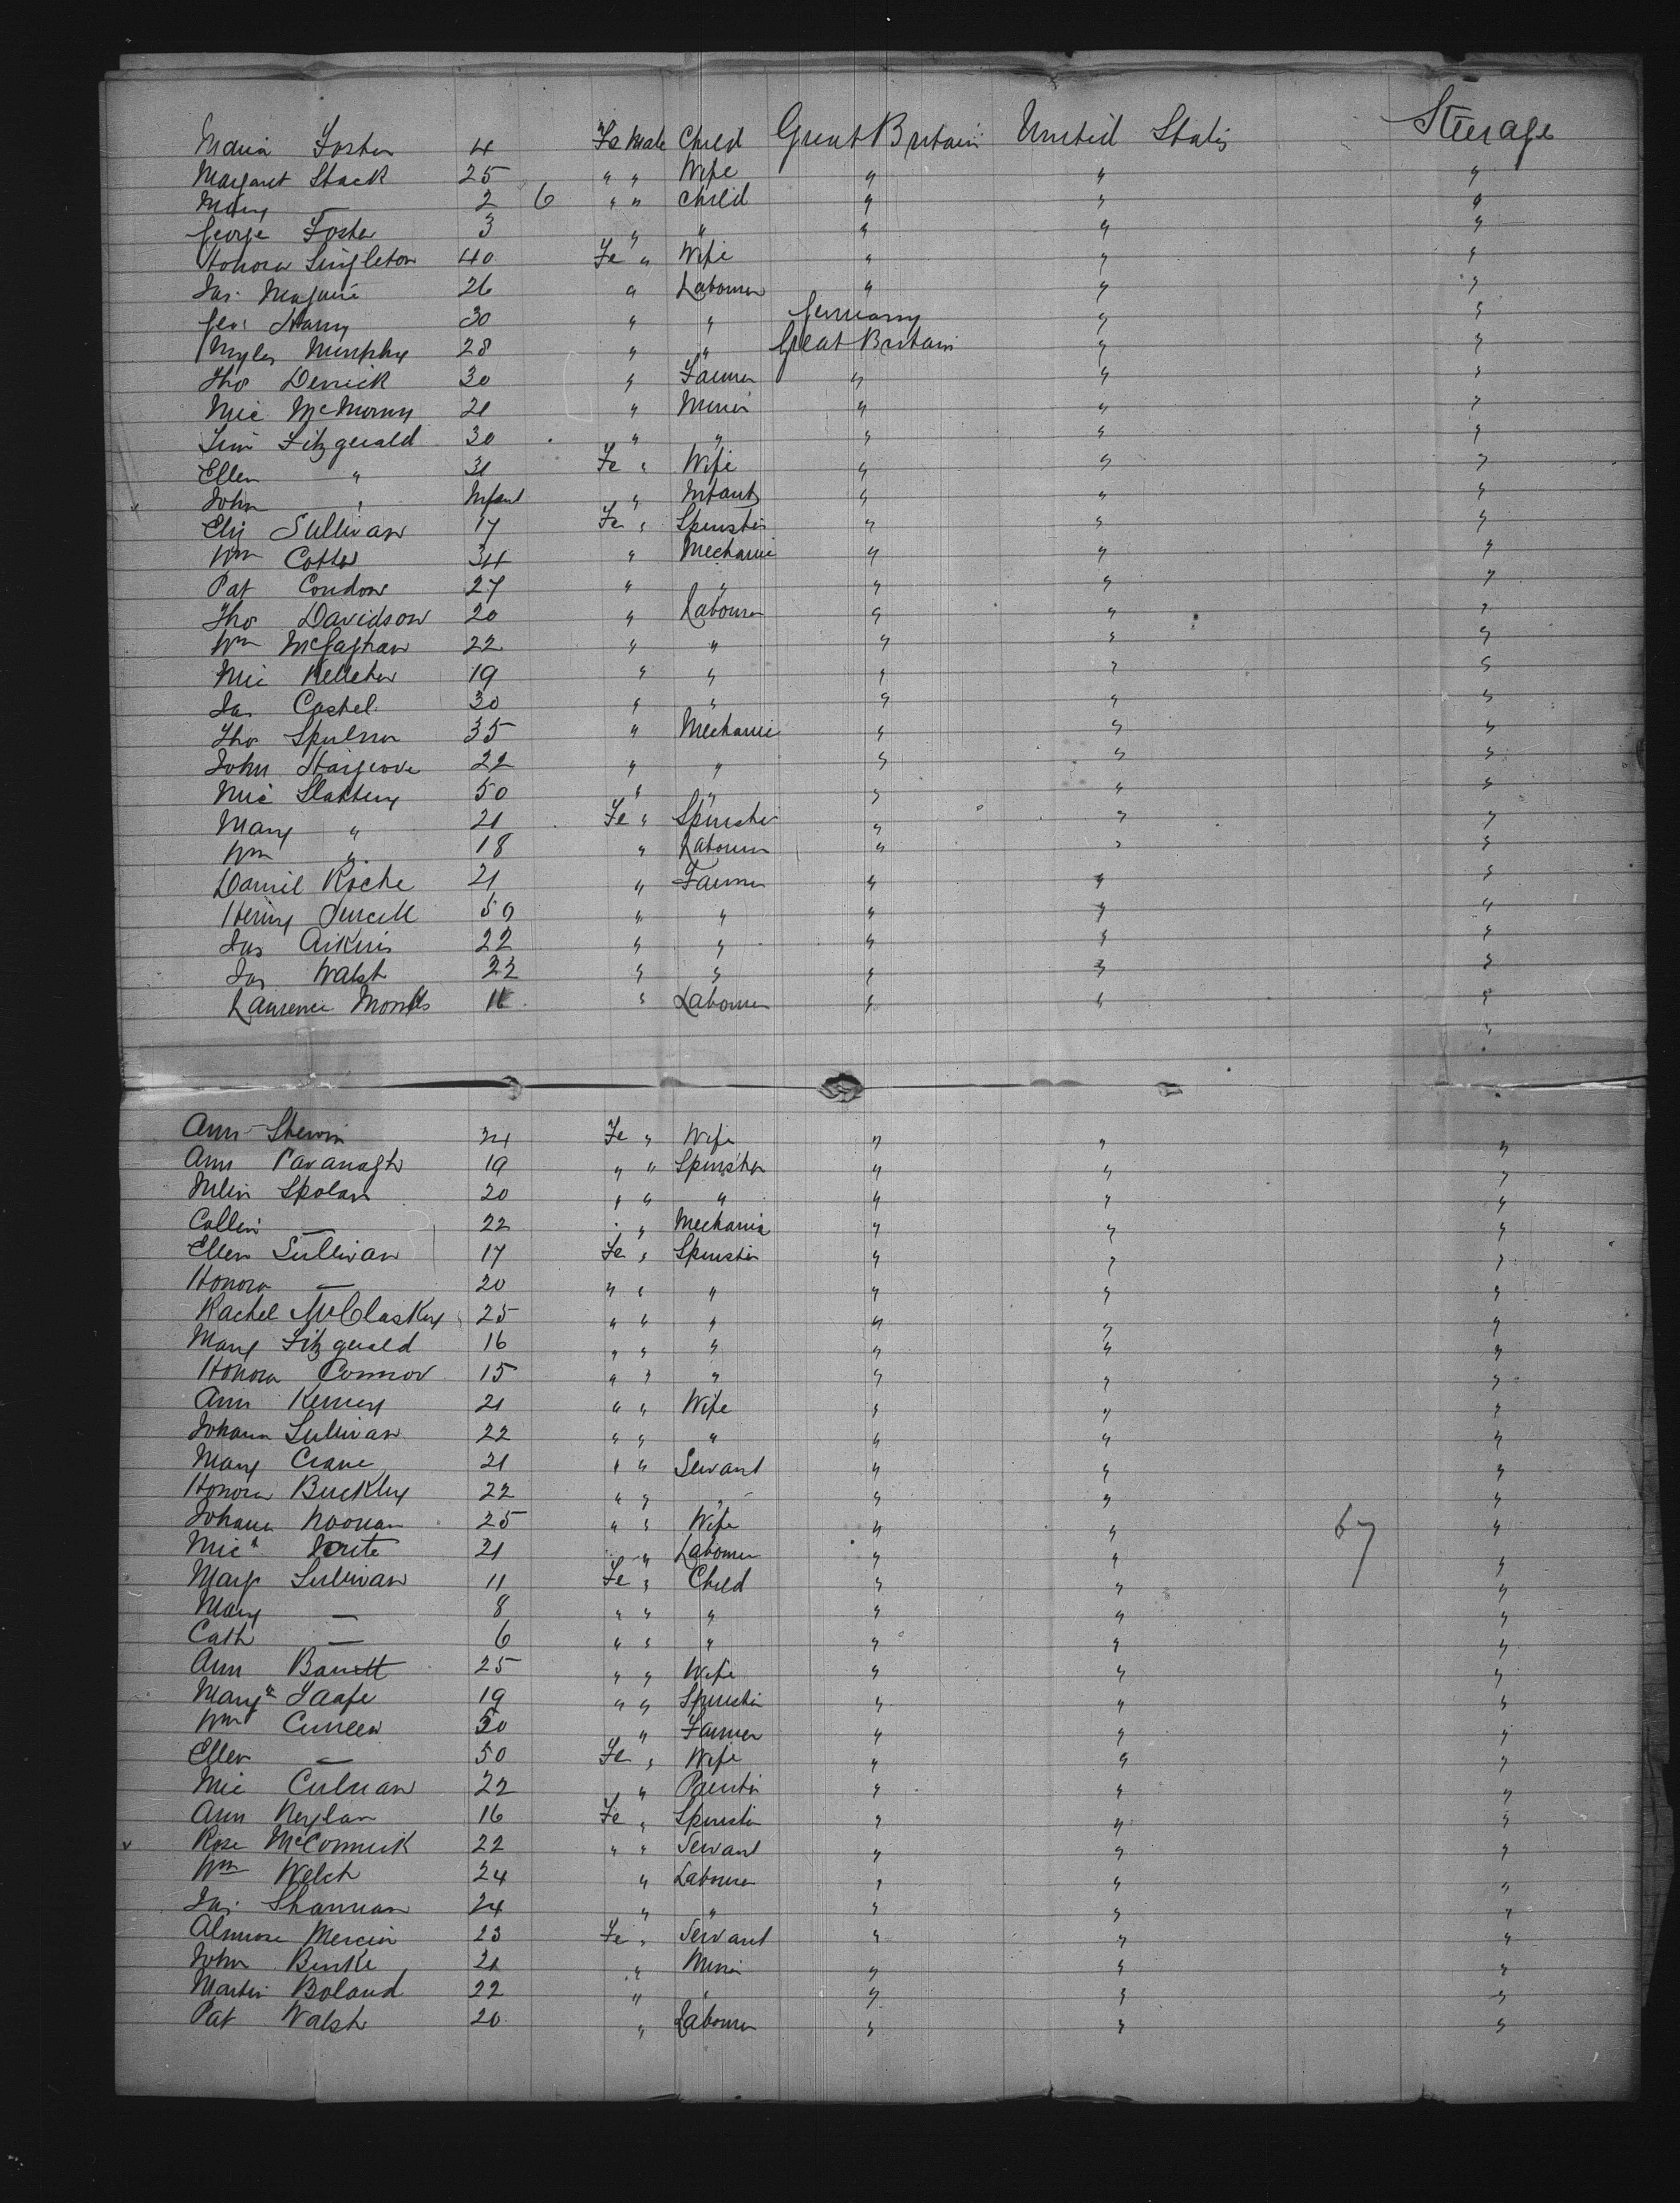 Maria Foster 4 Fe Male Child Great Britain United States Steerage
Margaret Stack 25 " " Wife " " "
Mary — 2 6 " " Child " " "
George Foster 3 " " " " "
Honora Singleton 40 Fe " Wife " " "
Jas. Maguire 26 " Labourer " " "
Geo: 30 " " Germany " "
Myles Murphy 28 " " Great Britain " "
Tho Derrick 30 " Farmer " " "
Mic 21 " Miner " " "
Tim Fitzgerald 30 " " " " "
Ellen " 31 Fe " Wife " " "
John " Infant " Infant " " "
Eliz Sullivan 17 Fe " Spinster " " "
Wm Cotter 34 " Mechanic " " "
Pat Condon 27 " " " " "
Tho Davidson 20 " Labourer " " "
Wm McGaghran 22 " " " " "
Mic Kelleher 19 " " " " "
Jas Cashel 30 " " " " "
Tho 35 " Mechanic " " "
John Hargrove 22 " " " " "
Mic Slattery 50 " " " " "
Mary " 21 Fe " Spinster " " "
Wm " 18 " Labourer " " "
Daniel Roche 21 " Farmer " " "
Henry Purcell 50 " " " " "
Jas Aikins 22 " " " " "
Jas Walsh 22 " " " " "
Laurence Monks 16 " Labourer " " "
"
Ann Sherwin 24 Fe " Wife " " "
Ann Cavanagh 19 " " Spinster " " "
Spolan 20 " " " " " "
Collin — 22 " Mechanic " " "
Ellen Sullivan 17 Fe " Spinster " " "
Honora — 20 " " " " " "
Rachel McClaskey 25 " " " " " "
Mary Fitzgerald 16 " " " " " "
Honora Connor 15 " " " " " "
Ann Kenney 21 " " Wife " " "
Johana Sullivan 22 " " " " " "
Mary Crane 21 " " Servant " " "
Honora Buckley 22 " " " " " "
Johana Noonan 25 " " Wife " " 67 "
Mic 21 " Labourer " " "
Mary Sullivan 11 Fe " Child " " "
Mary — 8 " " " " " "
Cath — 6 " " " " " "
Ann Barrett 25 " " Wife " " "
Margt 19 " " Spinster " " "
Wm Curreen 50 " Farmer " " "
Ellen — 50 Fe " Wife " " "
Mic Culnan 22 " " " "
Ann Neylan 16 Fe " Spinster " " "
Rose McCormick 22 " " Servant " " "
Wm Welch 24 " Labourer " " "
Jas. Shannan 24 " " " " "
Mercier 23 Fe " Servant " " "
John Burke 21 " Miner " " "
Martin Boland 22 " " " " "
Pat Walsh 20 " Labourer " " "